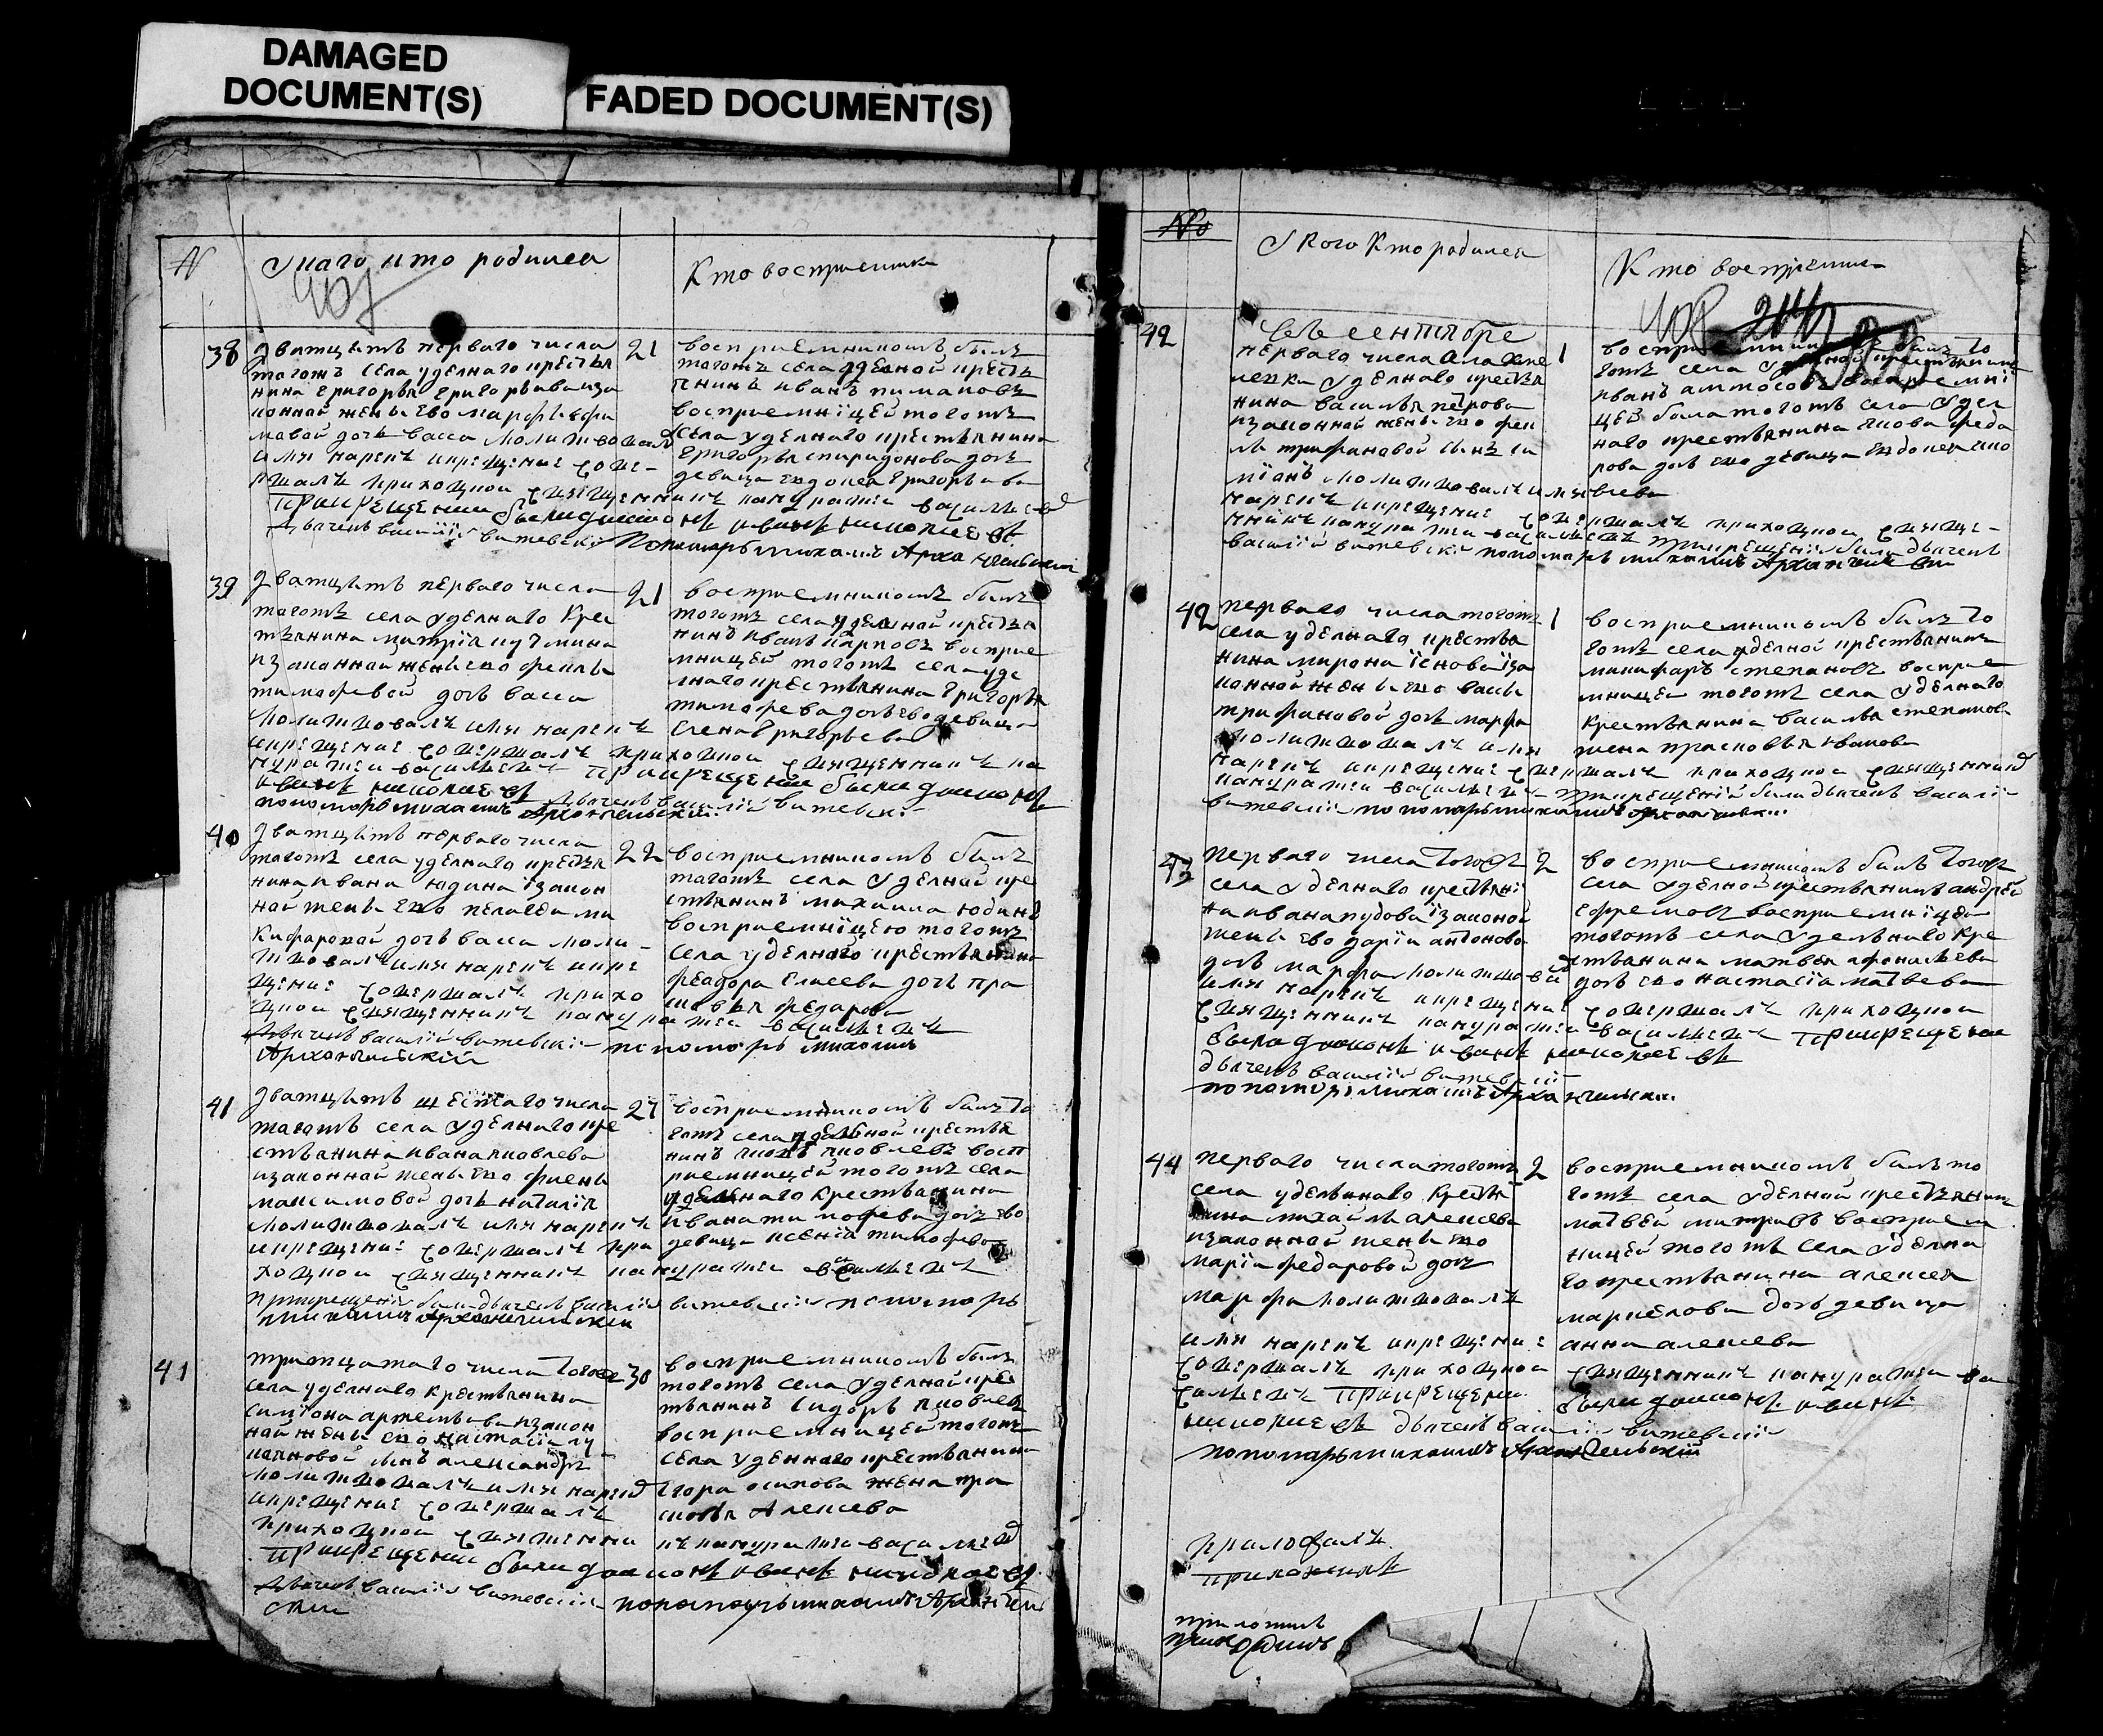 DAMAGED
DOCUMENT(S)
FADED DOCUMENT(S)
N
У каго кто родился
Кто восприемники
38
дватцеть перваго числа
тогожъ села уделного крестья
нина григорья григорьива иза
конной жены ево марфы ефи
мовой дочь васса молитвовалъ
имя нарекъ икрещение совер
шалъ приходной священникъ панкратеи васильевъ
прикрещении были диаконъ иванъ николаевъ
дьячекъ василїй витевскїй Пономарь михаилъ Архангельский
21
восприемникомъ былъ
тогожъ села уделной кресть
янинъ иванъ
восприемнїцей тогожъ
села уделного крестьянина
григорья спиридонова дочь
девица евдокея григорьева
39
дватцеть перваго числа
тогожъ села уделнаго крес
тьянина митрїя кузмина
изаконной жены ево феклы
тимофевой дочь васса
молитвовалъ имя нарекъ
икрещение совершалъ приходнои священникъ па
нкратеи васильевъ прикрещении были диаконъ
иванъ николаевъ дьячекъ василїй витевскї
пономорь михаилъ Архангельский
21
восприемникомъ былъ
тогожъ села уделной крестья
нинъ иванъ карповъ восприе
мницей тогожъ села уде
лнаго крестьянина григорья
тимофева дочь ево девица
елена григорьева
40
дватцеть перваго числа
тогожъ села уделнаго крестья
нина ивана юдина изакон
ной жены ево пелагеи ни
кифаровай дочь васса моли
твовалъ имя нарекъ икре
щение совершалъ прихо
дной священникъ панкратеи васильевъ
дьячекъ василїй витевскїй пономорь михаилъ
Архангельскїй
22
восприемникомъ былъ
тогожъ села уделной кре
стьянинъ михаила юдинъ
восприемнїцею тогожъ
села уделного крестьянина
феадора елисева дочь пра
сковья федарова
41
дватцеть шестаго числа
тогожъ села уделнаго кре
стьянина ивана яковлева
изаконной жены ево фиены
максимовой дочь наталїя
молитвовалъ имя нарекъ
икрещение совершалъ при
ходной священникъ панкратеи васильевъ
прикрещении были дьячекъ василїй витевскїй пономорь
михаилъ Архангельский
27
восприемникомъ былъ то
гожъ села уделной крестья
нинъ яковъ яковлевъ восп
риемницей тогожъ села
уделнаго крестьянина
ивана тимофева дочь ево
девица ксенїя тимофева
41
тритцатаго числа тогожъ
села уделнаго крестьянина
симїона артемьева изакон
ной жены ево настасїи лу
кияновой сынъ александръ
молитвовалъ имя нарекъ
икрещение совершалъ
приходной священни
къ панкратеи васильевъ
прикрещении были диаконъ иванъ николаевъ
дьячекъ василїй витевскїй пономарь михаилъ Архангель
ский
30
восприемникомъ былъ
тогожъ села уделной крес
тьянинъ сидоръ яковлевъ
восприемницей тогожъ
села уделнаго крестьянина
егора осипова жена пра
сковья Алексева
No
У кого Кто родился
Кто восприемник
204
42
Въ сентябре
перваго числа
уделнаго крестья
нина василья петрова
изаконной жены ево фек
лы трифановой сынъ си
мїонъ молитвовалъ имя
нарекъ икрещение совершалъ приходнои священ
никъ панкратеи васильевъ прикрещенїи были дьячекъ
василїй витевскїй пономарь михаилъ Архангельский
1
восприемникомъ былъ то
гожъ села уделной крестьянинъ
иванъ аммосовъ восприемнї
цей была тогожъ села удел
наго крестьянина якова федо
рова дочь ево девица евдокея яко
влева
42
перваго числа тогожъ
села уделнаго крестья
нина мирона їзза
конной жены ево вассы
трифановой дочь марфа
молитвовалъ имя
нарекъ икрещение совершалъ приходнои священникъ
панкратеи васильевъ прикрещенїи были дьячекъ василїй
витевскїй пономарь михаилъ Архангельский
1
восприемникомъ былъ то
гожъ села уделной крестьянинъ
никифаръ степановъ восприе
мницей тогожъ села уделнаго
крестьянина василья степанова
жена прасковья иванова
43
перваго числа тогожъ
села уделнаго крестьянї
на ивана пудова їзаконой
жены ево дарїи антоново
дочь марфа молитвовалъ
имя нарекъ икрещение совершалъ приходнои
священникъ панкратеи васильевъ прикрещении
были диаконъ иванъ николаевъ
дьячекъ василїй витевскїй
пономорь михаилъ Архангельский
2
восприемникомъ былъ тогожъ
села уделной крестьянинъ андрей
ефремовъ восприемнїцей
тогожъ села уделънаго кре
стьянина матвея афонасьева
дочь ево настасїя матвева
44
перваго числа тогожъ
села уделънаго кресть
янина михайлы алексева
изаконной жены ево
марїи федаровой дочь
марфа молитвовалъ
имя нарекъ икрещение
совершалъ приходной священникъ панкратеи ва
сильевъ прикрещении были диаконъ иванъ
николаевъ дьячекъ василїй витевскїй
пономарь михаилъ Архангельскїй
2
восприемникомъ былъ то
гожъ села уделной крестьянинъ
матвей митривъ восприем
ницей тогожъ села уделна
го крестьянина алексея
маркелова дочь девица
анна алексева